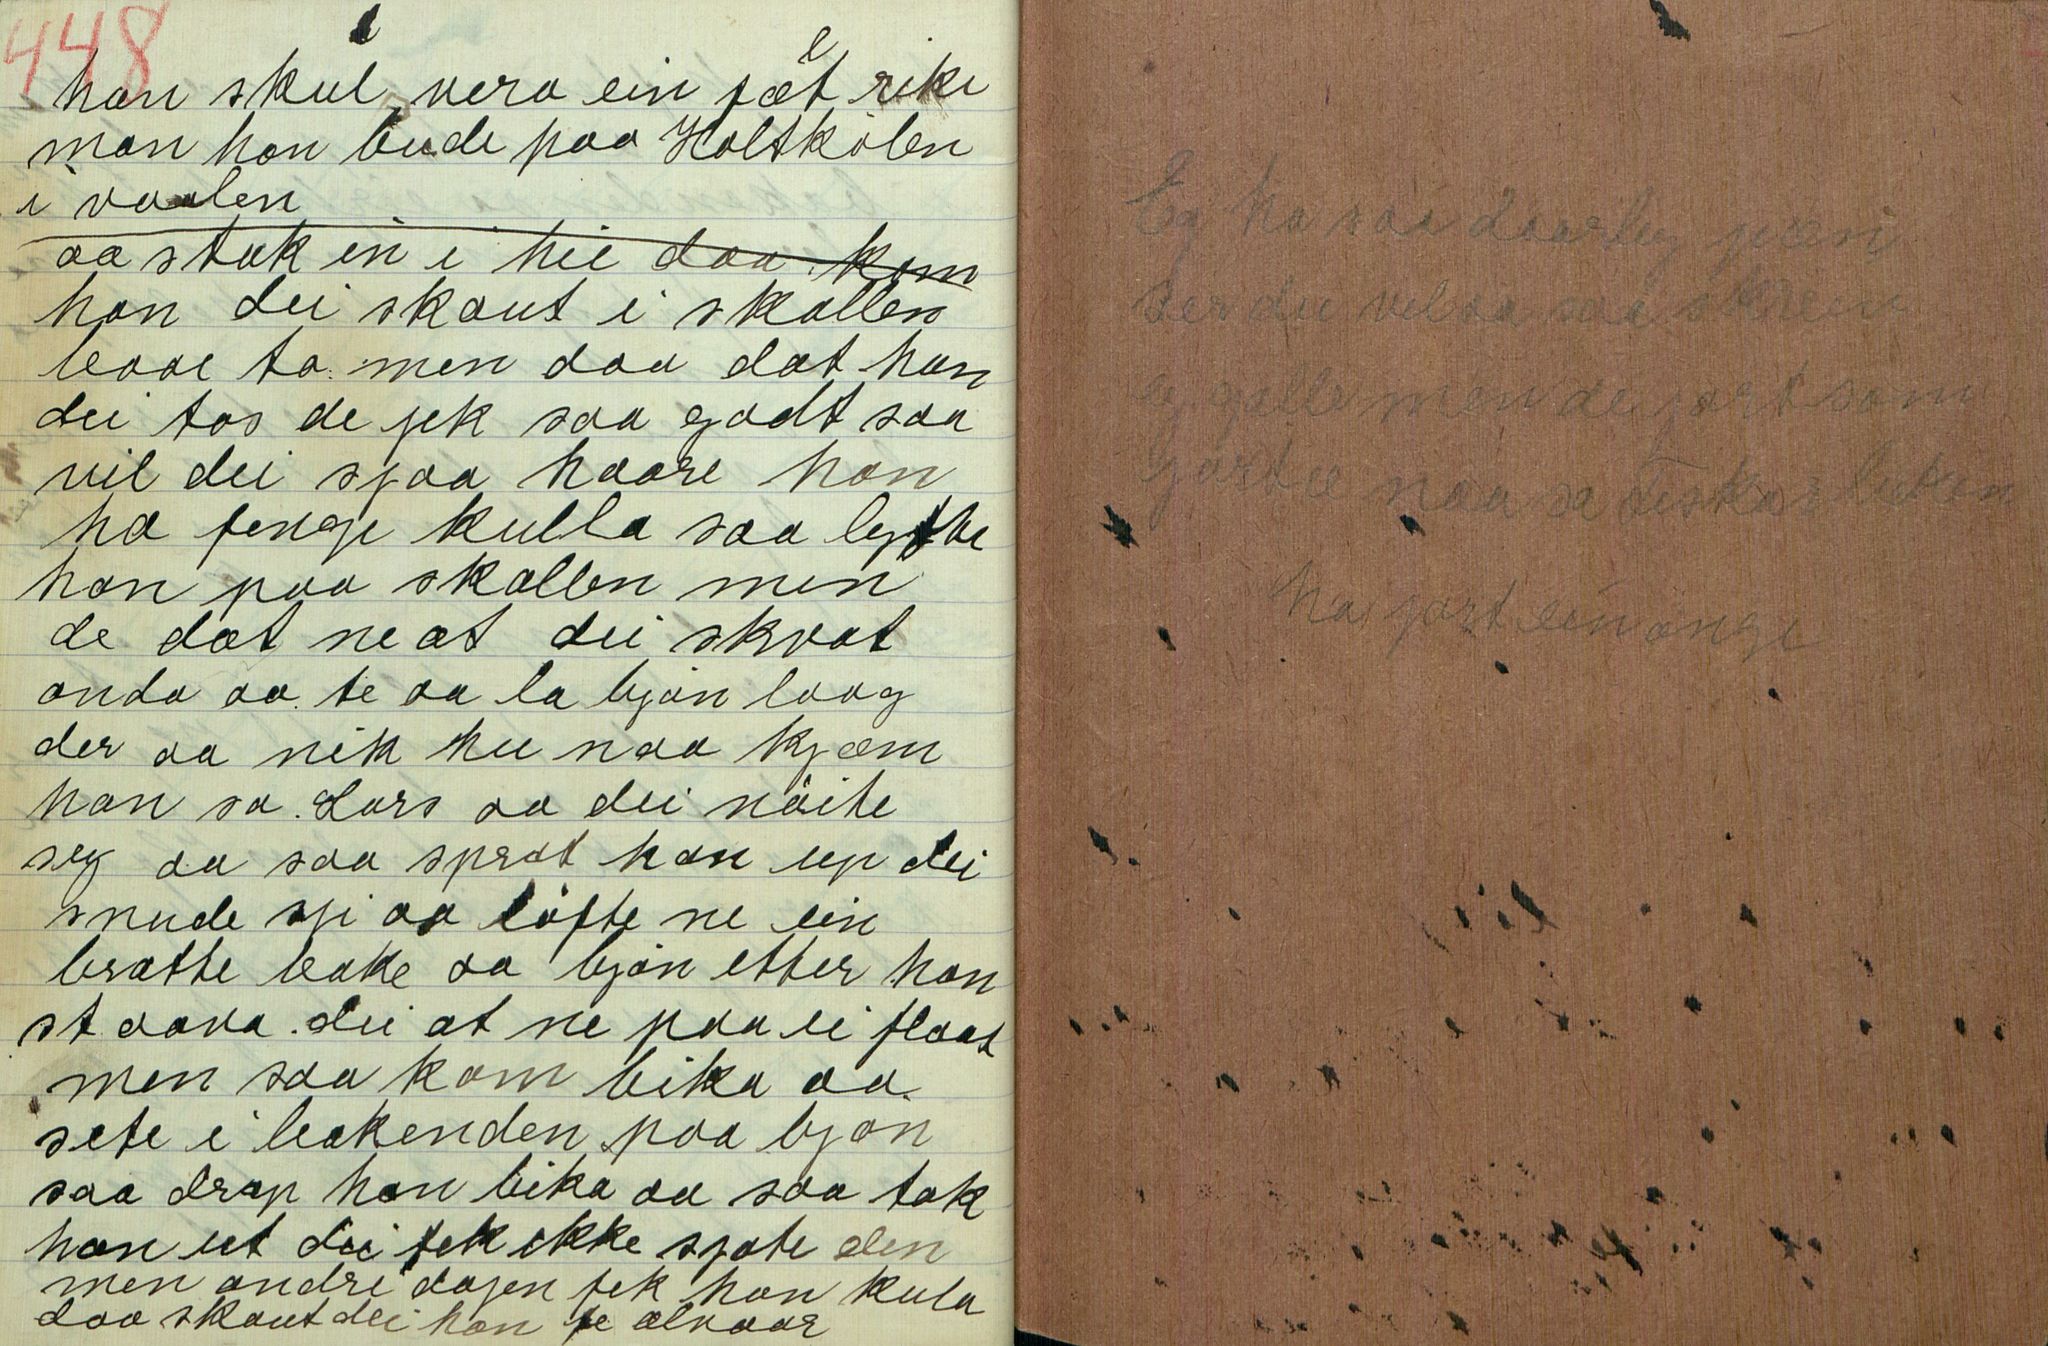 448
han skul vera ein fælt rike
man han bude paa Holtkölen
i vaalen
aa stak in i hie daa kom
han dei skaut i skallen
baae to men daa dat han
dei tos de jek saa godt saa
vil dei sjaa haare han
ha fenge kulla saa lyfte
han paa skallen men
de dat ne at dei skvat
onda aa te aa la bjön laag
der aa nik hu naa kjæm
han sa Lars aa dei nöite
seg aa saa sprat han up dei
snude sji aa löfte ne ein
bratte bake aa bjön etter han
st aava dei at ne paa ei flaat
men saa kom bika aa
sete i bakenden paa bjön
saa drap han bika aa saa tok
han ut dei fek ikke sjote den
men andre dagen fek han kula
daa skaut dei han te alvaar
Eg ha saa daarleg pæn
ser du vel aa saa skreiv
eg galle men de fort som
gjort e naa sa
ha gort ein onge